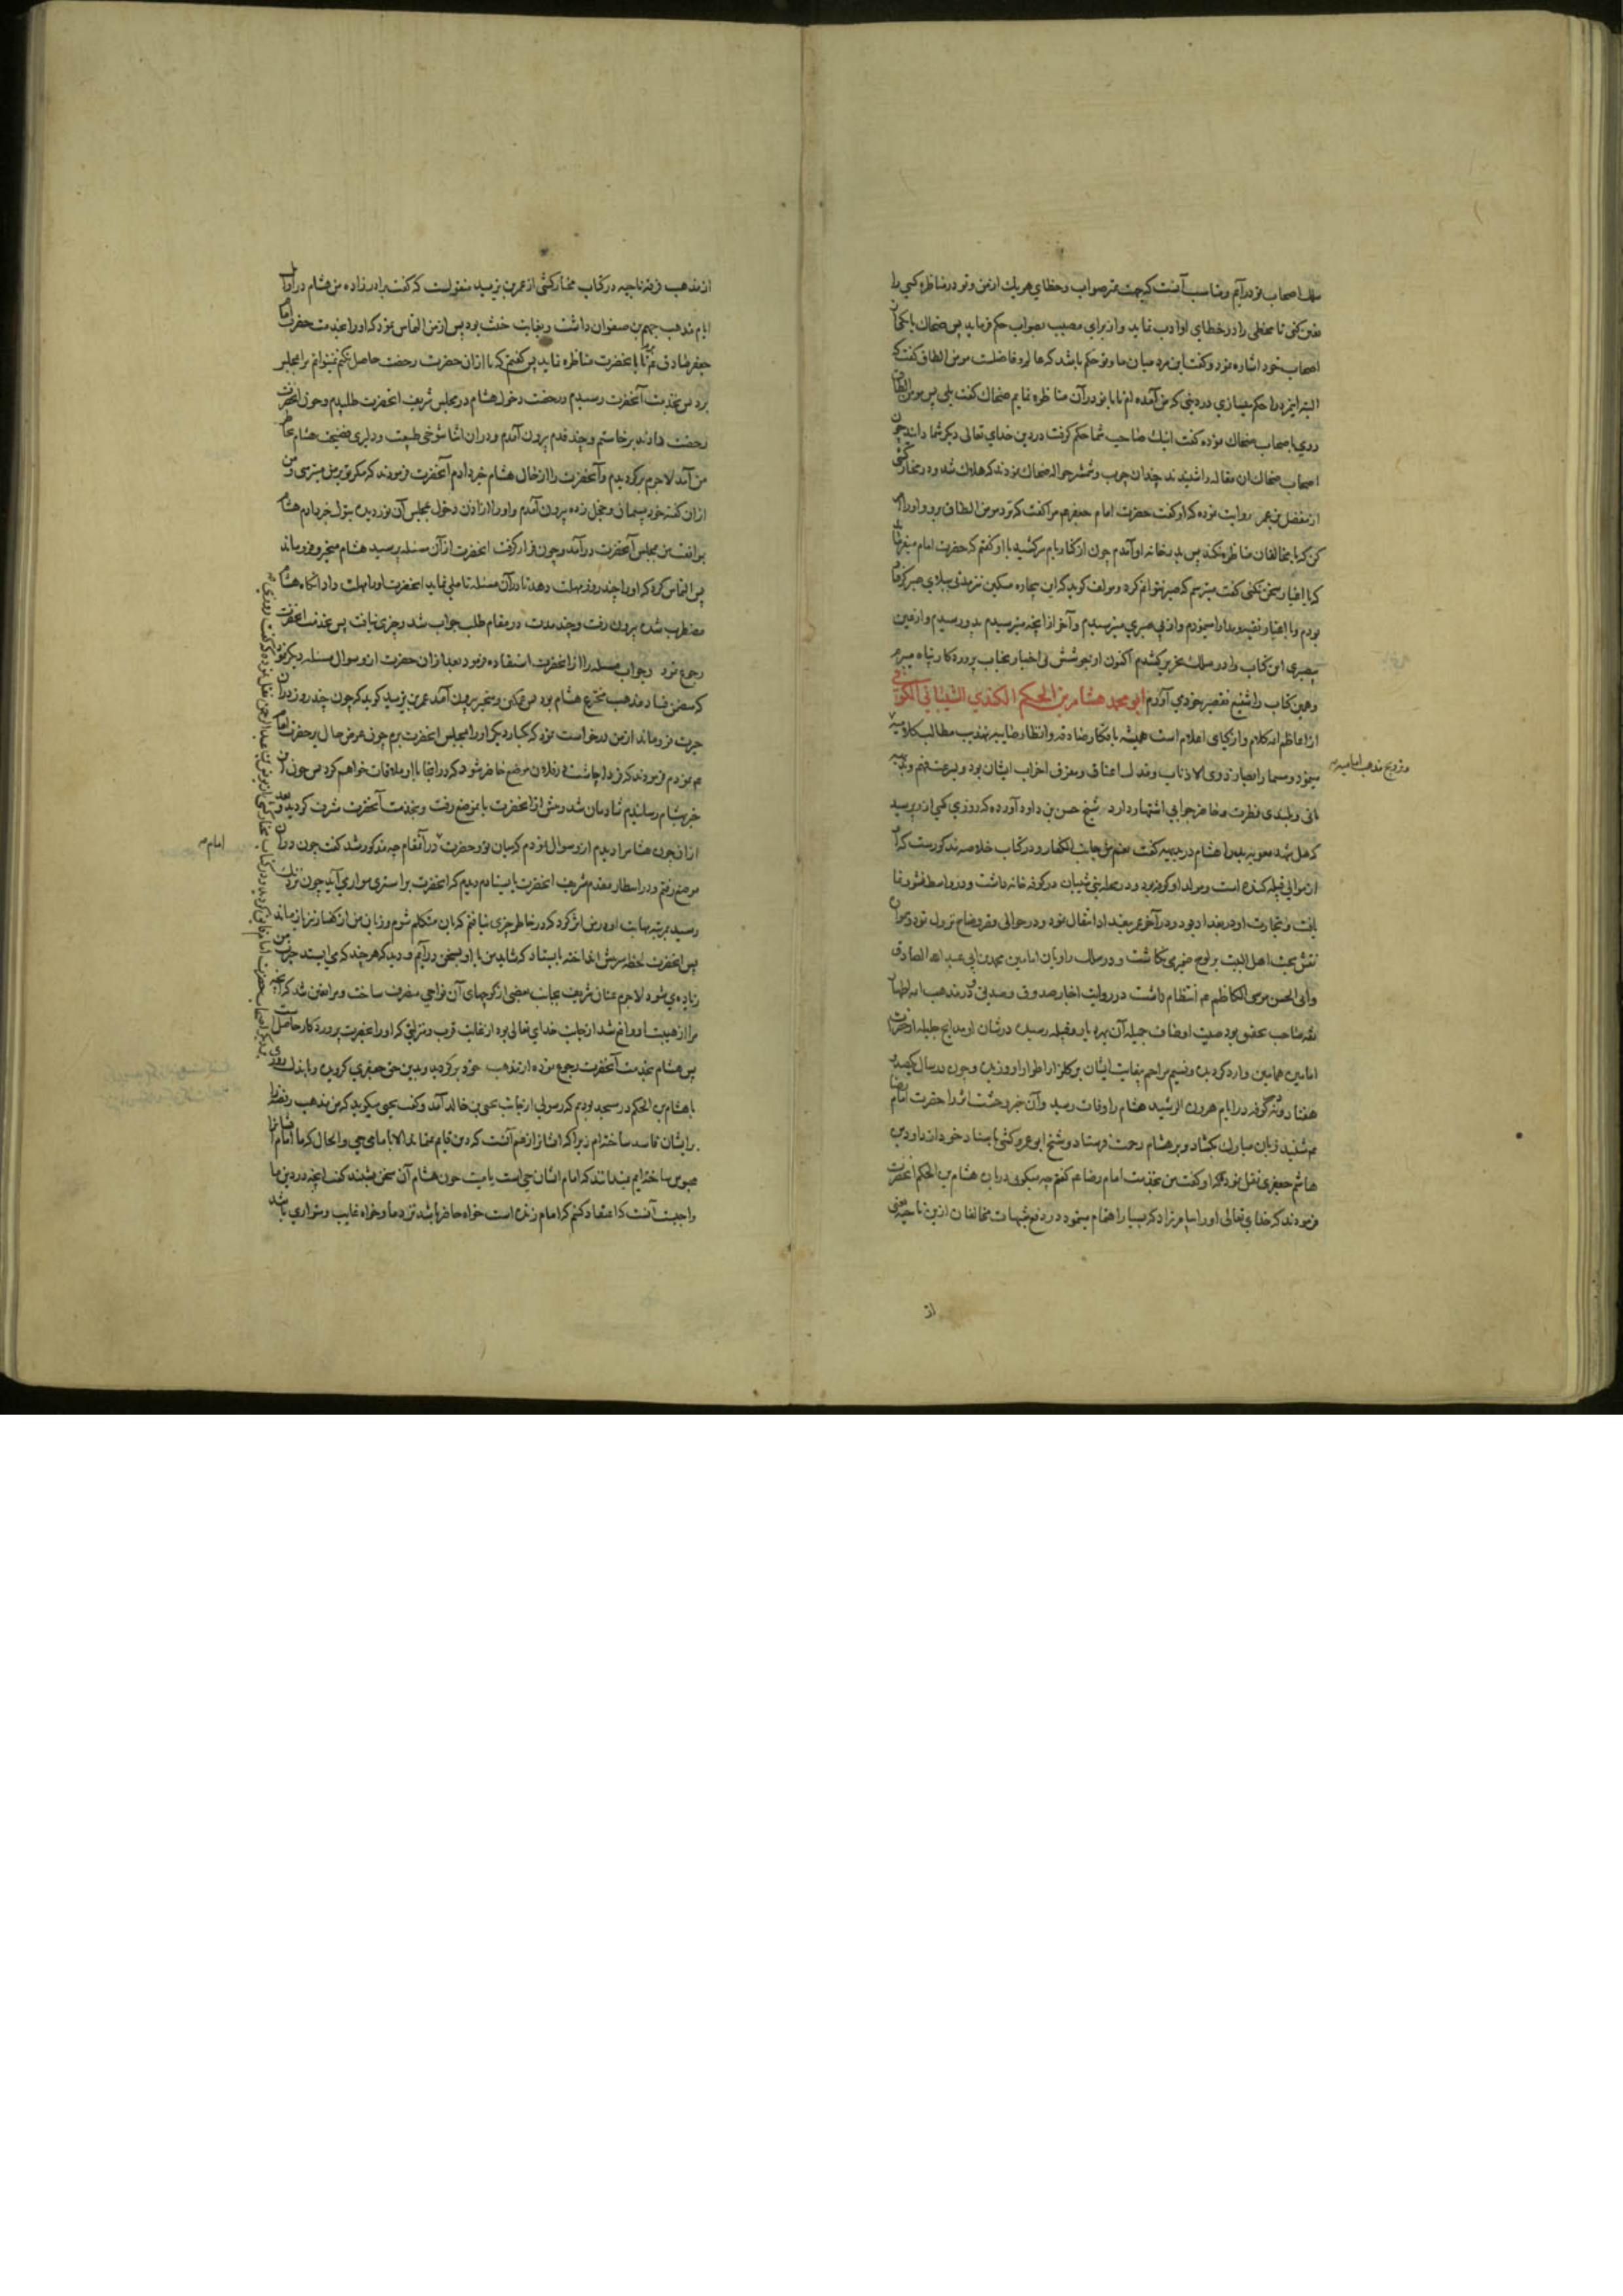 سلك اصحاب تو درآیم ومناسب آنست که جهت تمیز صواب وخطای هریك از من و تو در مناظره کسی را
معین کنی تا مخطی را در خطای او ادب نماید و از برای مصیب بصواب حکم فرماید پس ضحاك بیکی از
اصحاب خود اشاره نمود و گفت این مرد میان ما و تو حکم باشد که عالم و فاضلست مومن الطاق گفت که
البته این مرد را حکم میسازی در دینی که من آمده ام تا با تو در آن مناظره نمایم ضحاك گفت بلی پس مومن الطاق
روی باصحاب ضحاك نموده گفت اینك صاحب شما حکم گرفت در دین خدای تعالی دیگر شما دانید چون
اصحاب ضحاك ان مقاله را شنیدند چندان چوب وشمشیر حواله ضحاك نمودند که هلاك شد و در مختار کشی
از مفضل بن عمر روایت نموده که او گفت حضرت امام جعفر م مرا گفت که نزد مومن الطاق برو و او را امر
کن که با مخالفان مناظره نکند پس بدر خانه او آمدم چون از کنار بام سر کشید با او گفتم که حضرت امام میفرماید
که با اغیار سخن نکنی گفت میترسم که صبر نتوانم کرد و مولف گوید که این بیچاره مسکین نیز مدتی ببلای صبر گرفتار
بودم و با اغیار تقیه و مدارا مینمودم و از بی صبری میترسیدم و آخر از آنچه میترسیدم بدو رسیدم و از عین
بیصبری این کتاب را در سلك تحریر کشیدم اکنون از جوشش بی اختیار بجناب پروردکار پناه میبرم
وهمین کتاب را شفیع تقصیر خود می آورم ابو محمد هشام بن الحکم الکندی الشیبانی الکوفی
از اعاظم ائمه کلام و ازکیای اعلام است همیشه بافکار صادقه وانظار صایبه تهذیب مطالب کلامیه
وترویج مذهب امامیه
مینمود
مانی وبلندی فطرت وحاضر جوابی اشتهار دارد شیخ حسن بن داود آورده که روزی کسی از و پرسید
که هل شهد معویه بدرا هشام در بدیهه گفت نعم من جانب الکفار و در کتاب خلاصه مذکورست که او
از موالی قبیله کنده است و مولد او کوفه بود و در محله بنی شیبان در کوفه خانه داشت و در واسط نشو و نما
یافت و تجارت او در بغداد بود و در آخر عمر ببغداد انتقال نمود و در حوالی قصر وضاح نزول نمود و
نقش محبت اهل البیت بر لوح ضمیر می نکاشت و در سلك راویان امامین همامین ابی عبد الله الصادق
وابی الحسن موسی الکاظم م انتظام داشت در روایت اخبار صدوق و
ثقه صاحب تحقیق بود
امامین همامین وارد کردیده ونسیم مراحم بیغایت ایشان بر کلزار اطوار او وزیده و چون در سال یکصد و
هفتاد و نه بکوفه در ایام هرون الرشید هشام را وفات رسید و آن خبر وحشت اثر را حضرت امام رضا
م شنید زبان مبارك بکشاد و بر هشام رحمت فرستاد و شیخ ابو عمرو کشی باسناد خود از داود بن
هاشم جعفری نقل نموده که او گفت من بخدمت امام رضا م گفتم چه میگویی در باب هشام بن الحکم آنحضرت
فرمودند که خدای تعالی او را بیامرزاد که بسیار اهتمام مینمود در دفع شبهات مخالفان ازین ناحیه یعنی
از
از مذهب فرقه ناجیه در کتاب مختار کشی از عمر بن یزید منقولست که گفت برادر زاده من هشام در اوایل
ایام مذهب جهم بن صفوان داشت و بغایت خبیث بود پس از من التماس نمود که او را بخدمت حضرت امام
جعفر صادق م برم تا با آنحضرت مناظره نماید پس گفتم که تا از آن حضرت رخصت حاصل نکنم نمیتوانم ترا بمجلس
برد پس بخدمت آنحضرت رسیدم و رخصت دخول هشام در مجلس شریف آنحضرت طلبیدم و چون آنحضرت
رخصت دادند برخاستم و چند قدم بیرون آمدم و در ان اثنا شوخی طبیعت و دلیری فضیحت هشام بخاطر
من آمد لاجرم برگردیدم و آنحضرت را از حال هشام خبر دادم آنحضرت فرمودند که مگر تو بر من میترسی و من
از ان گفته خود پشیمان و خجل زده بیرون آمدم و او را از اذن دخول مجلس آن نور دیده بتول خبر دادم هشام
بموافقت من بمجلس آنحضرت درآمد و چون قرار گرفت آنحضرت از آن مسئله پرسید هشام متحیر و فرو ماند
پس التماس کرد که او را چند روز مهلت دهد تا در آن مسئله تامل نماید آنحضرت او را مهلت داد آنگاه هشام
مضطرب شده بیرون رفت و چند مدت در مقام طلب جواب شد و چیزی نیافت پس بخدمت آنحضرت
رجوع نمود و جواب مسئله را از آنحضرت استفاده نمود بعد از ان حضرت از و سوال مسئله دیگر نمود
که متضمن فساد مذهب مخترع هشام بود پس غمگین و متحیر بیرون آمد عمر بن یزید گوید که چون چند روز در آن
حیرت فرو ماند از من درخواست نمود که یکبار دیگر او را بمجلس آنحضرت برم چون عرض حال بر حضرت امام
م نمودم فرمودند که فردا چاشت در فلان موضع حاضر شود که در آنجا با او ملاقات خواهم کرد پس چون آن
خبر بهشام رسانیدم شادمان شد و پیش از آنحضرت بآن موضع رفت و بخدمت آنحضرت مشرف گردید و بعد
از ان چون هشام را دیدم از و سوال نمودم که میان تو و حضرت امام م در آنمقام چه مذکور شد گفت چون در آن
موضع رفتم و در انتظار مقدم شریف آنحضرت بایستادم دیدم که آنحضرت بر استری سوار می آید چون نزدیك
رسید بمرتبه مهابت او در من اثر کرد که در خاطر چیزی نیافتم که بآن متکلم شوم و زبان من از گفتار نیز باز ماند
پس آنحضرت لحظه سر پیش انداخته بایستاد که شاید من با او بسخن درآیم و دید که هر چند که می ایستد حیرت من
زیاده میشود لاجرم عنان شریف بجانب بعضی از کوچهای آن نواحی منصرف ساخت و مرا یقین شد که آنچه
مرا از هیبت او واقع شد از جانب خدای تعالی بود از غایت قرب و منزلتی که او را بحضرت پروردکار حاصلست
پس هشام بخدمت آنحضرت رجوع نموده از مذهب خود برگردید و بدین حق جعفری گروید
با هشام بن الحکم در مسجد بودیم که رسولی از جانب یحیی بن خالد آمد و گفت یحیی میگوید که من مذهب رفضه را
برایشان فاسد ساخته ام زیرا که ایشانرا زعم آنست که دین قایم نمیماند الا با مام حی و الحال که ما امام ایشانرا
محبوس ساخته ایم نمیدانند که امام ایشان حی است یا میت چون هشام آن سخن شنید گفت آنچه در دین ما
واجبست آنست که اعتقاد کنیم که امام زنده است خواه حاضر باشد نزد ما و خواه غایب و متواری باشد